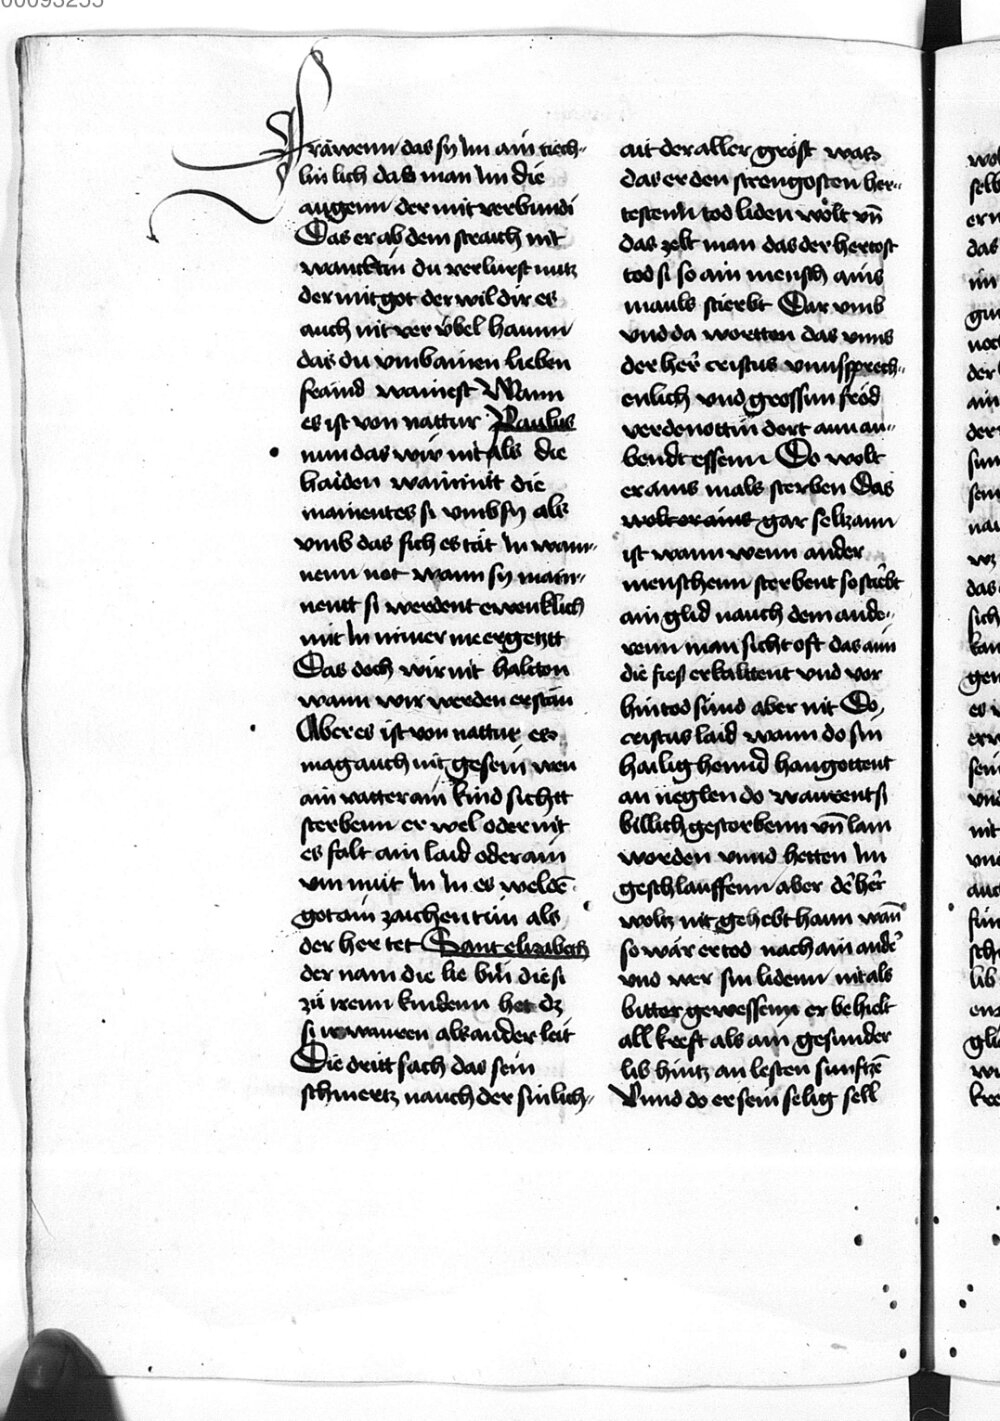 fräwenn das sy im ain tiech-
lin lich das man im die
augenn der mit verbundi
Das er ab dem straich nit
wancktin du verlurst nütz
der mit got der wil dir es
auch nit ver übel haunn
das du umb ainen lieben
fraind wainest Wann
es ist von nattur Paulus
nun das wir nit als die
haiden wainintt die
mainentes si umb sy als
umb das sich es tät in wam-
nenn not wann sy main-
nentt si werdent ewenklich
mit in nimer me ergetztt
Das doch wir nit haltton
wann wir werden erstän
Aber es ist von nattur es
mag auch nit gesein wen
ain vatter ain kind sichtt
sterbenn er wel oder nit
es falt ain laid oder ain
un muit in in es welde
got ain zaichen tun als
der her tet Sant elizabeth
der nam die lie bin diesi
zu irenn kindenn het dz
si ir wauren als ander leit
Die dritt sach das sein
schmertz nauch der sinlich-
ait der aller gröst was
das er den strengosten her-
testenn tod liden wolt un
das zelt man das der hertost
tod si so ain mensch ains
mauls stierbt Dar umb
und da wortten das unns
der her cristus unussprech-
enlich und grossun fröd
verdenottin dort ann au-
bendt essenn Do wolt
er ains mals sterben Das
wolt er ains gar seltzann
ist wann wenn ander
menschenn sterbent so stirbt
ain glid nauch dem ande-
renn man sicht oft das ain
die fies erkaltent und vor
hin tod sind aber nit Do
cristus laid wann do sin
hailig hennd hangottent
an neglen do waurent si
billich gestorbenn un lam
worden unnd hetten im
geschlauffenn aber de her
woltz nit gehebt haun wan
so wär er tod nach ain ande
und wer sin lidenn nit als
bitter gewessenn er behielt
all kreft als ain gesunder
lib hintz an lesten sunftze
Unnd do er sein selig sell